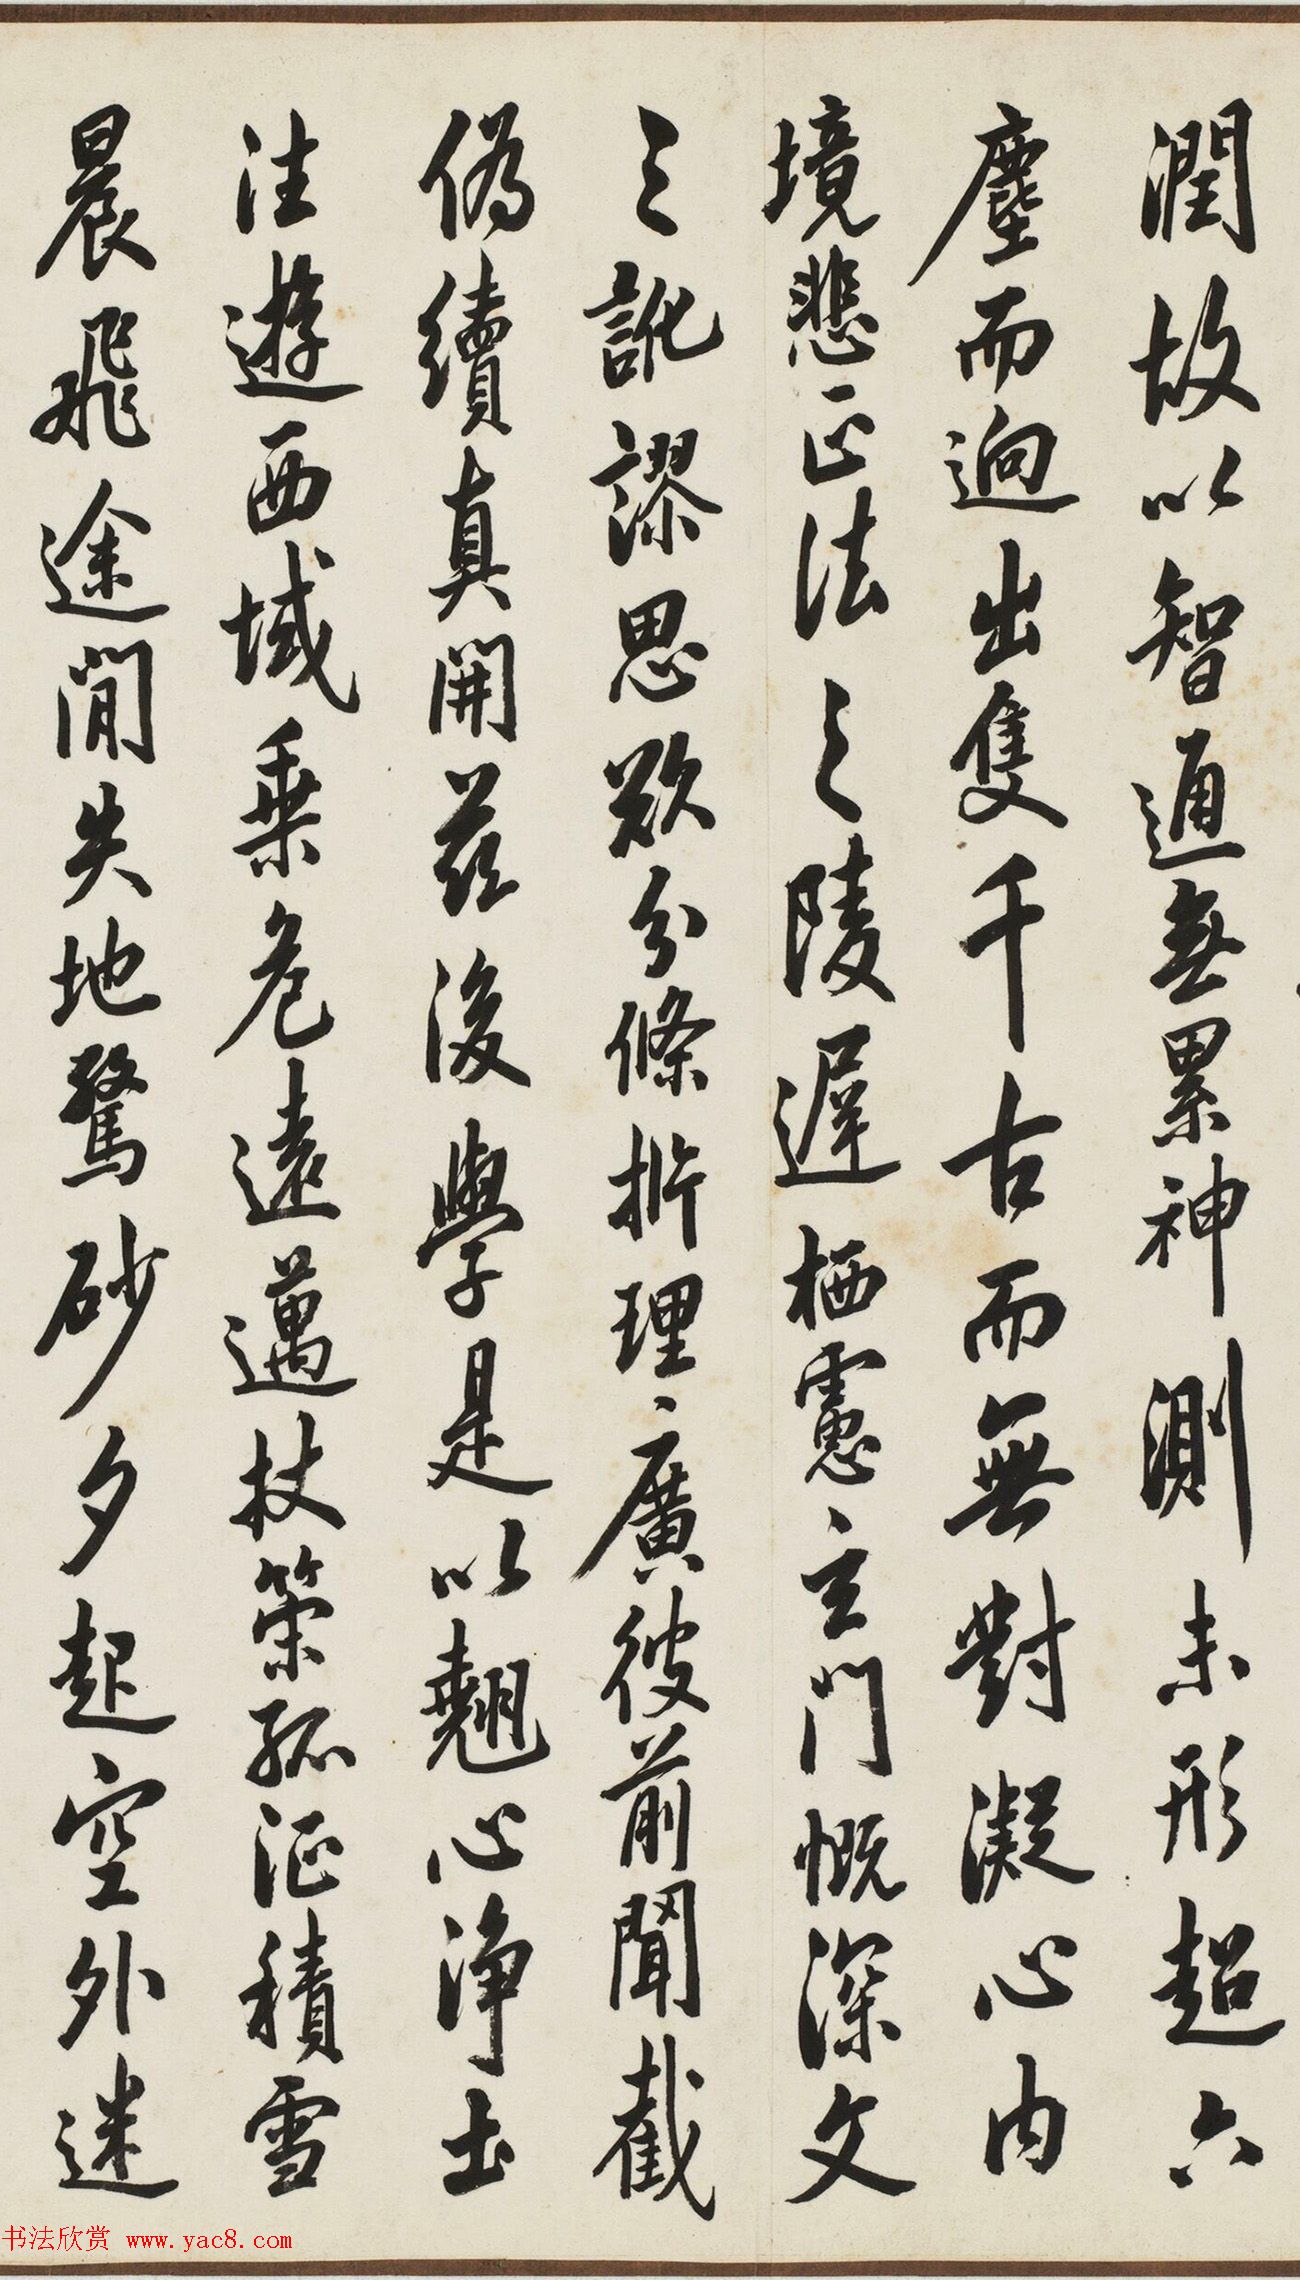 潤故以智通無累神測未形超六
塵而迥出隻千古而無對凝心内
境悲正法之陵遲栖慮玄門慨深文
之訛謬思欲分條析理廣彼前聞截
偽續真開兹後學是以翹心淨土
法遊西域乗危遠邁杖策孤征積雪
晨飛途閒失地驚砂夕起空外迷
书法欣赏 www.yac8.com